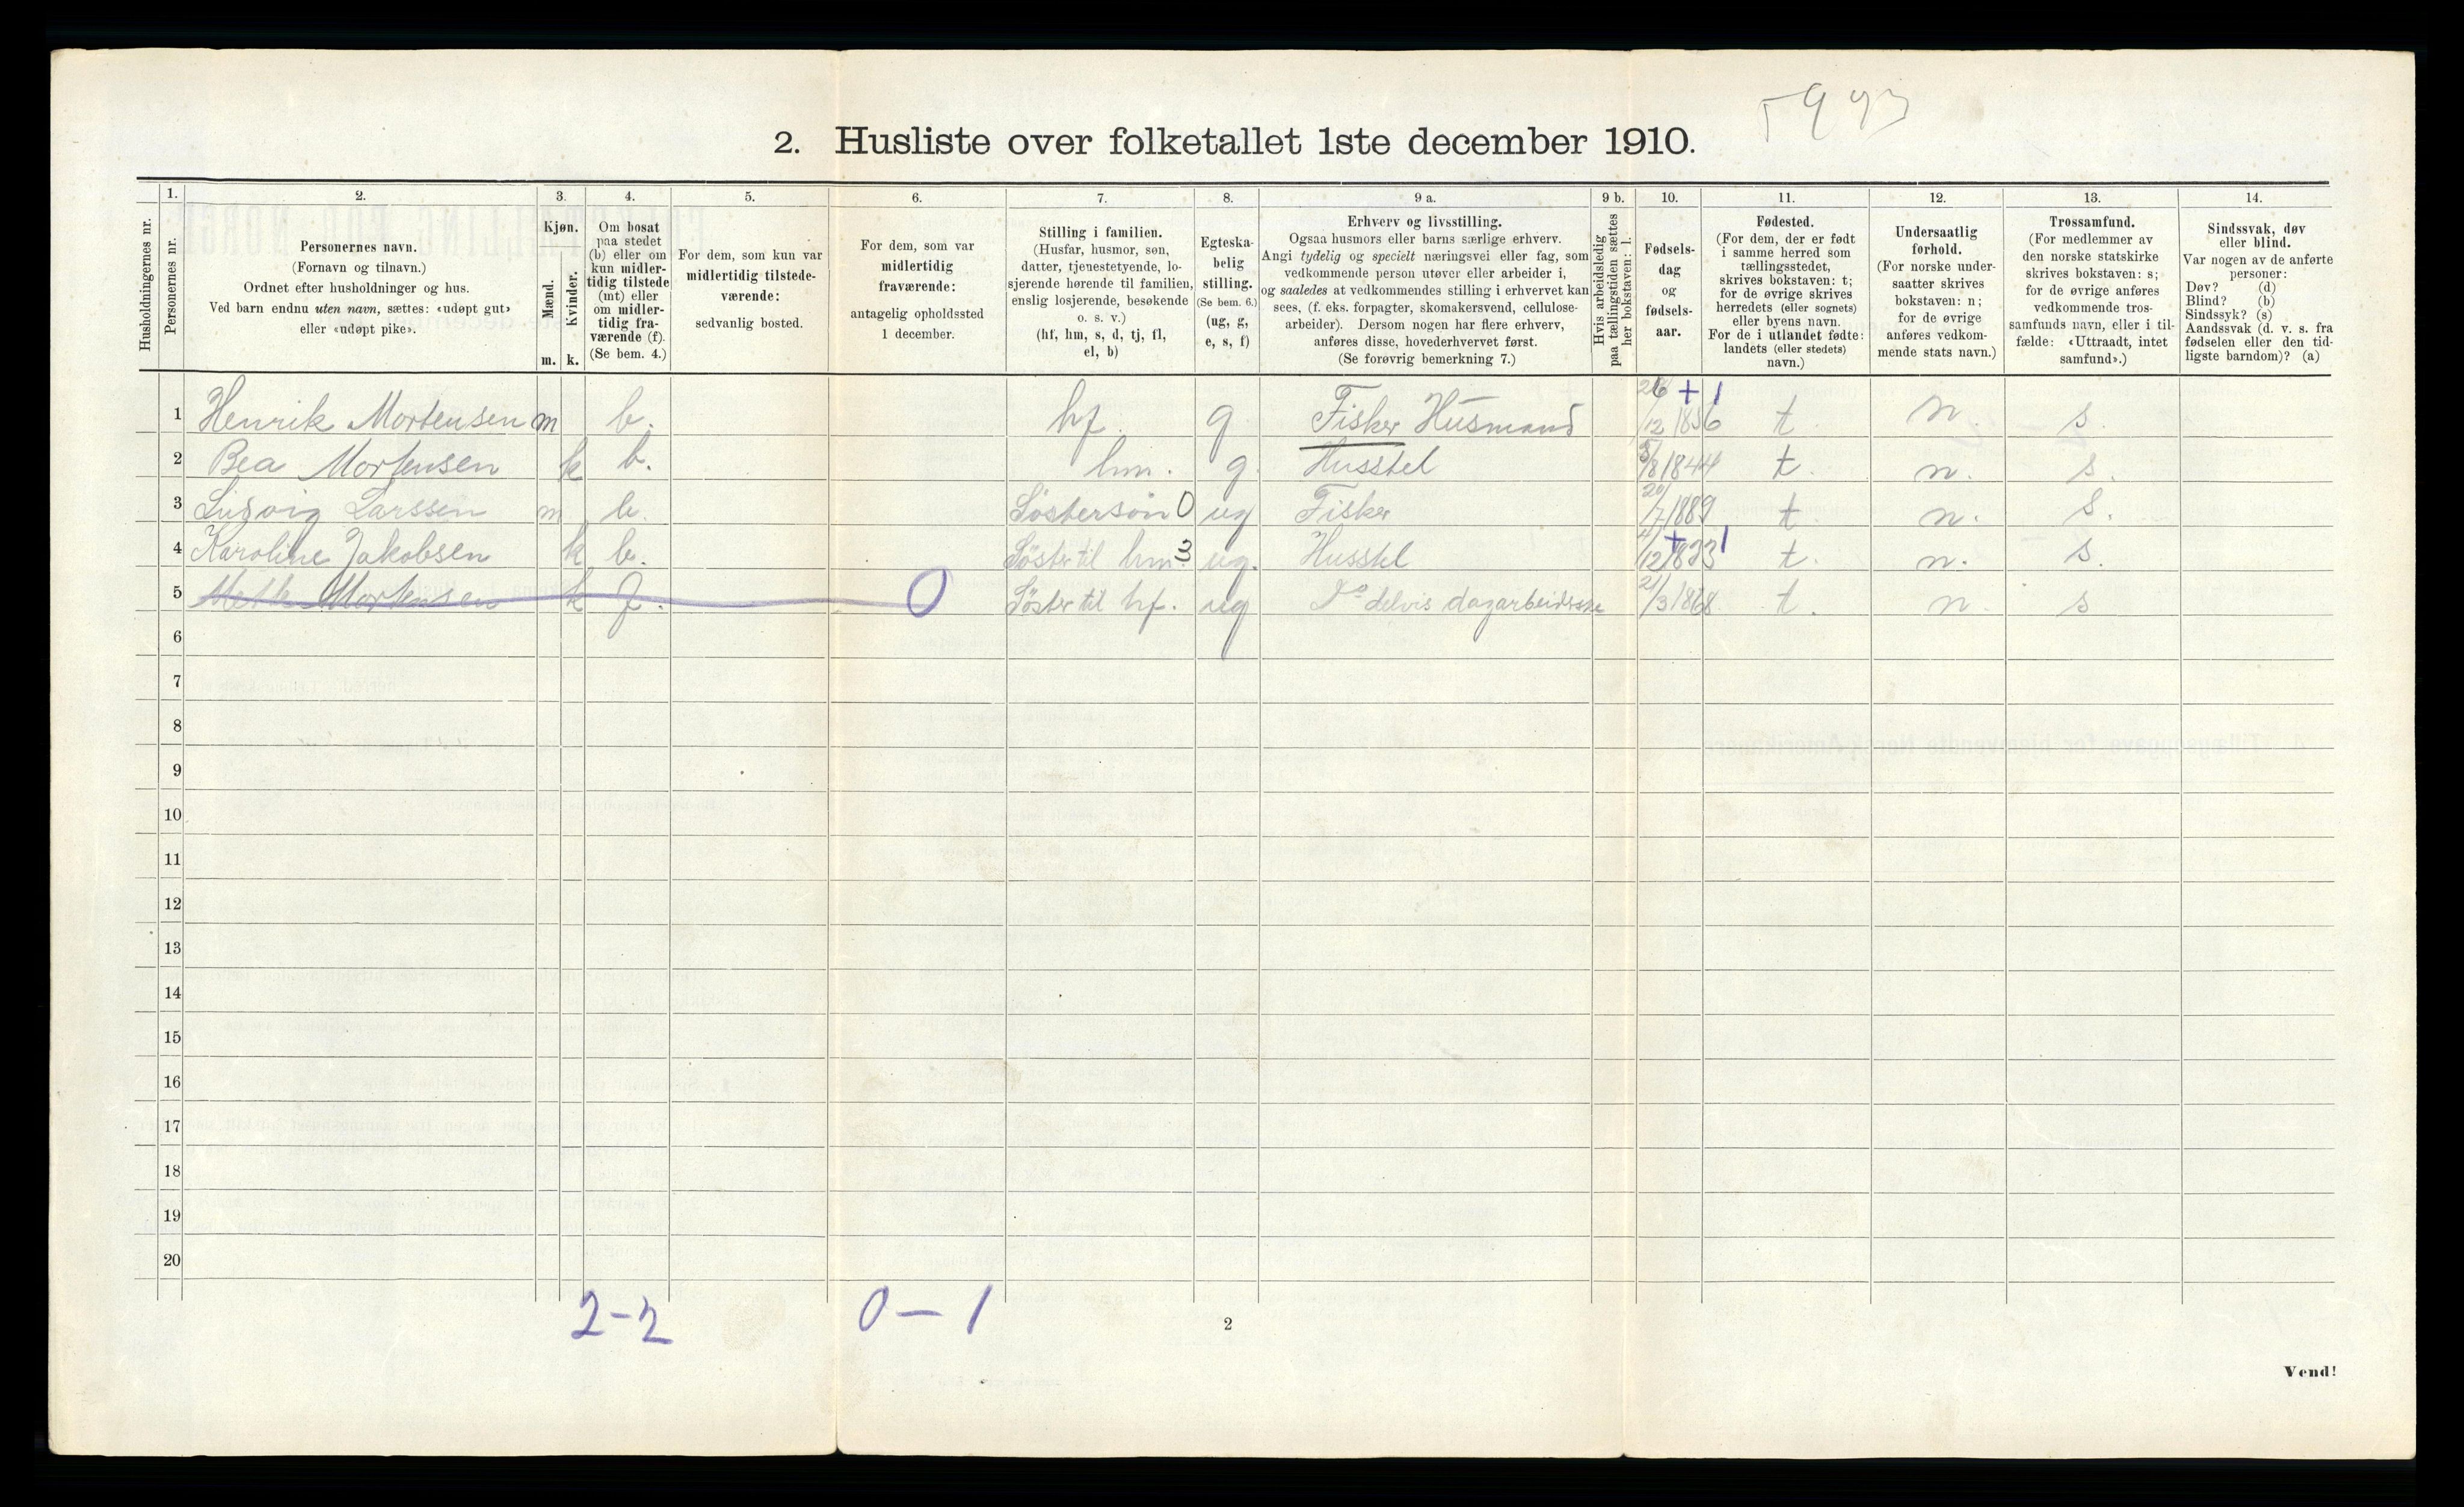 5993
2. Husliste over folketallet 1ste december 1910.
Husholdningernes nr.
1.
Personernes nr.
2.
Personernes navn.
(Fornavn og tilnavn.)
Ordnet efter husholdninger og hus.
Ved barn endnu uten navn, sættes: «udøpt gut»
eller «udøpt pike».
3.
Kjøn.
Mænd.
Kvinder.
m. k.
4.
Om bosat
paa stedet
(b) eller om
kun midler-
tidig tilstede
(mt) eller
om midler-
tidig fra-
værende (f).
(Se bem. 4.)
5.
For dem, som kun var
midlertidig tilstede-
værende:
sedvanlig bosted.
6.
For dem, som var
midlertidig
fraværende:
antagelig opholdssted
1 december.
7.
Stilling i familien.
(Husfar, husmor, søn,
datter, tjenestetyende, lo-
sjerende hørende til familien,
enslig losjerende, besøkende
o. s. v.)
(hf, hm, s, d, tj, fl,
el, b)
8.
Egteska-
belig
stilling.
(Se bem. 6.)
(ug, g,
e, s, f)
9 a.
Erhverv og livsstilling.
Ogsaa husmors eller barns særlige erhverv.
Angi tydelig og specielt næringsvei eller fag, som
vedkommende person utøver eller arbeider i,
og saaledes at vedkommendes stilling i erhvervet kan
sees, (f. eks. forpagter, skomakersvend, cellulose-
arbeider). Dersom nogen har flere erhverv,
anføres disse, hovederhvervet først.
(Se forøvrig bemerkning 7.)
9 b.
Hvis arbeidsledig
paa tællingstiden sættes
her bokstaven: l.
10.
Fødsels-
dag
og
fødsels-
aar.
11.
Fødested.
(For dem, der er født
i samme herred som
tællingsstedet,
skrives bokstaven: t;
for de øvrige skrives
herredets (eller sognets)
eller byens navn.
For de i utlandet fødte:
landets (eller stedets)
navn.)
12.
Undersaatlig
forhold.
(For norske under-
saatter skrives
bokstaven: n;
for de øvrige
anføres vedkom-
mende stats navn.)
13.
Trossamfund.
(For medlemmer av
den norske statskirke
skrives bokstaven: s;
for de øvrige anføres
vedkommende tros-
samfunds navn, eller i til-
fælde: «Uttraadt, intet
samfund».)
14.
Sindssvak, døv
eller blind.
Var nogen av de anførte
personer:
Døv? (d)
Blind? (b)
Sindssyk? (s)
Aandssvak (d. v. s. fra
fødselen eller den tid-
ligste barndom)? (a)
1 Henrik Mortensen m b. hf. g Fisker Husmand 26/12 1856 + 1 t n. s.
2 Bea Mortensen k b. hm. g. Husstel 5/8 1844 t. n. s.
3 Ludvig Larssen m b. Söstersön 0 ug Fisker 20/7 1889 t n. s.
4 Karoline Jakobsen k b. Söster til hm. 3 ug. Husstel 4/12 1833 + 1 t. n. s.
5 Mette Mortensen k f. 0 Söster til hf. ug Do delvis dagarbeiderske 21/3 1868 t. n. s
6
7
8
9
10
11
12
13
14
15
16
17
18
19
20
2-2 0-1
2
Vend!